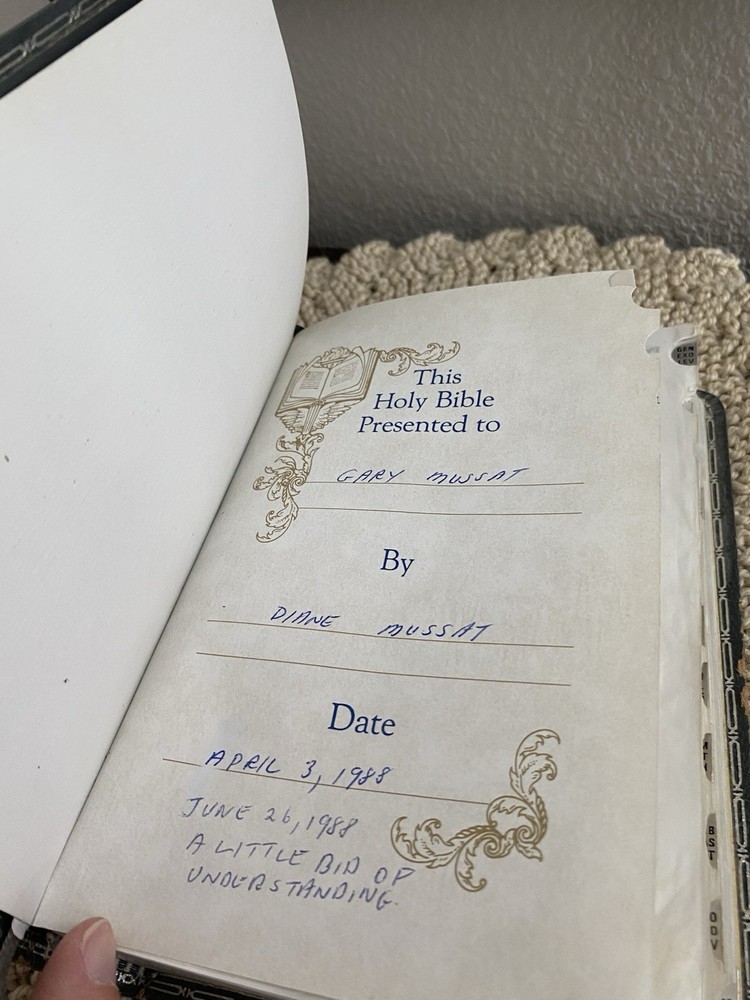 This
Holy Bible
Presented to
GARY MUSSAT
By
DIANE MUSSAT
Date
APRIL 3, 1988
JUNE 26, 1988
A LITTLE BID OF
UNDERSTANDING.
GEN
EXO
LEV